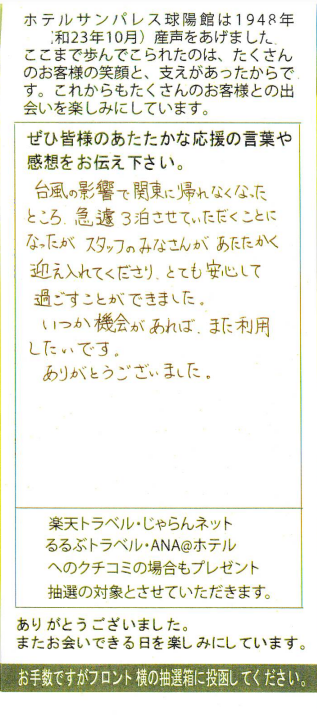 ホテルサンパレス球陽館は1948年
和23年10月）産声をあげました
ここまで歩んでこられたのは、たくさん
のお客様の笑顔と、支えがあったからで
す。これからもたくさんのお客様との出
会いを楽しみにしています。
ぜひ皆様のあたたかな応援の言葉や
感想をお伝え下さい。
台風の影響で関東に帰れなくなった
ところ、急遽3泊させていただくことに
なったが スタッフのみなさんが あたたかく
迎え入れてくださり、とても安心して
過ごすことができました。
いつか機会があれば、また利用
したいです。
ありがとうございました。
楽天トラベル・じゃらんネット
るるぶトラベル・ANA@ホテル
へのクチコミの場合もプレゼント
抽選の対象とさせていただきます。
ありがとうございました。
またお会いできる日を楽しみにしています。
お手数ですがフロント横の抽選箱に投函してください。